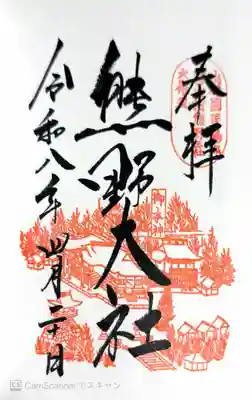 奉拝
熊野大社
令和八年 四月二十日
CamScannerでスキャン